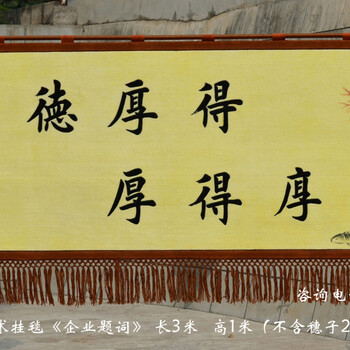 徳厚得
厚得
咨询电
术挂毯《企业题词》 长3米 高1米（不含穗子2